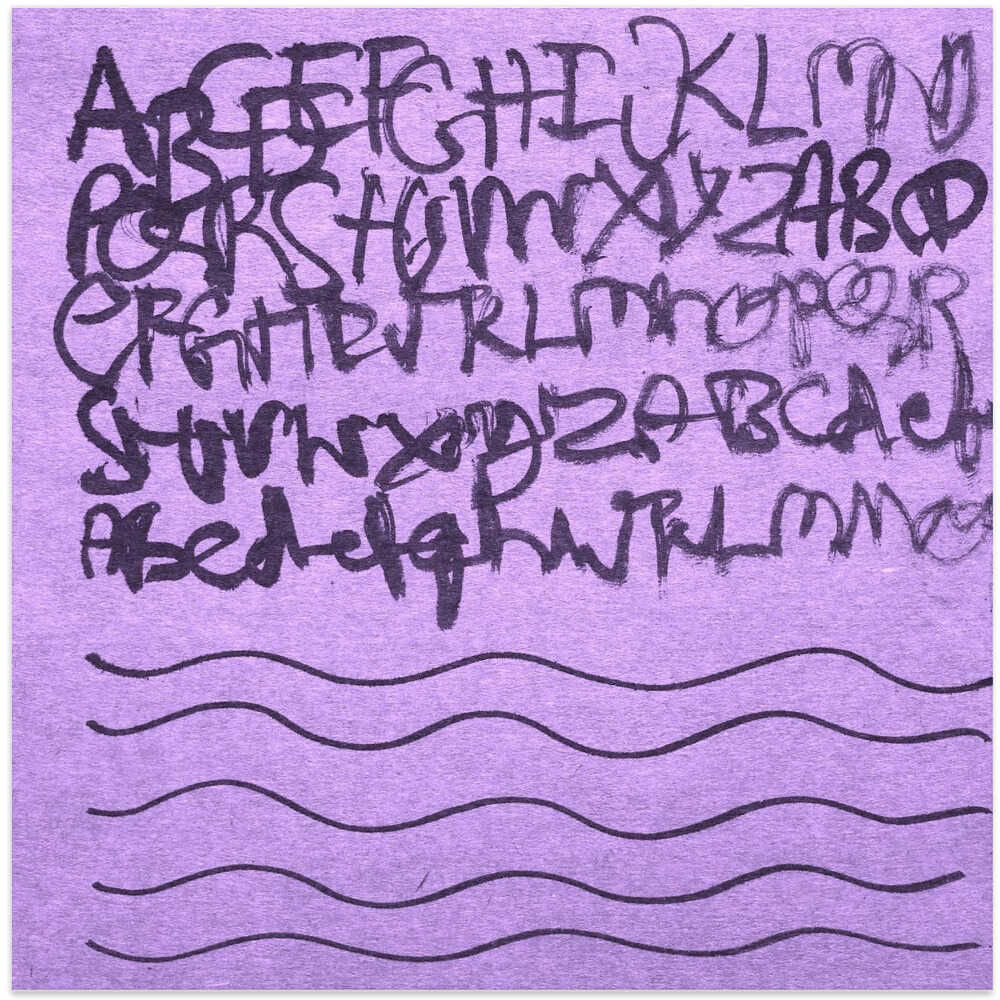 ABCDEFGHIJKLMNO
PQRSTUVWXYZABCD
EFGHIJKLMNOPQR
STUVWXYZABC
Abcdefghijklmno